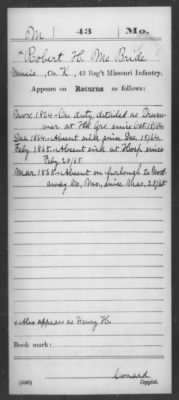 M 43 Mo.
* Robert H. Mc Bride
Co. K, 43 Reg't Missouri Infantry.
Appears on Returns as follows:
Novr 1864 - On duty, detailed as Drum-
mer at Hd. Qrs. since Oct 18/64
Dec 1864 - Absent sick since Dec. 15/64.
Feby. 1865 - Absent sick at Hosp. since
Feby. 20/65.
Mar 1865 - Absent on furlough to Nod-
away Co, Mo, since Mar. 23/65
* Also appears as Henry H.
Book mark:
(546)
Conard
Copyist.